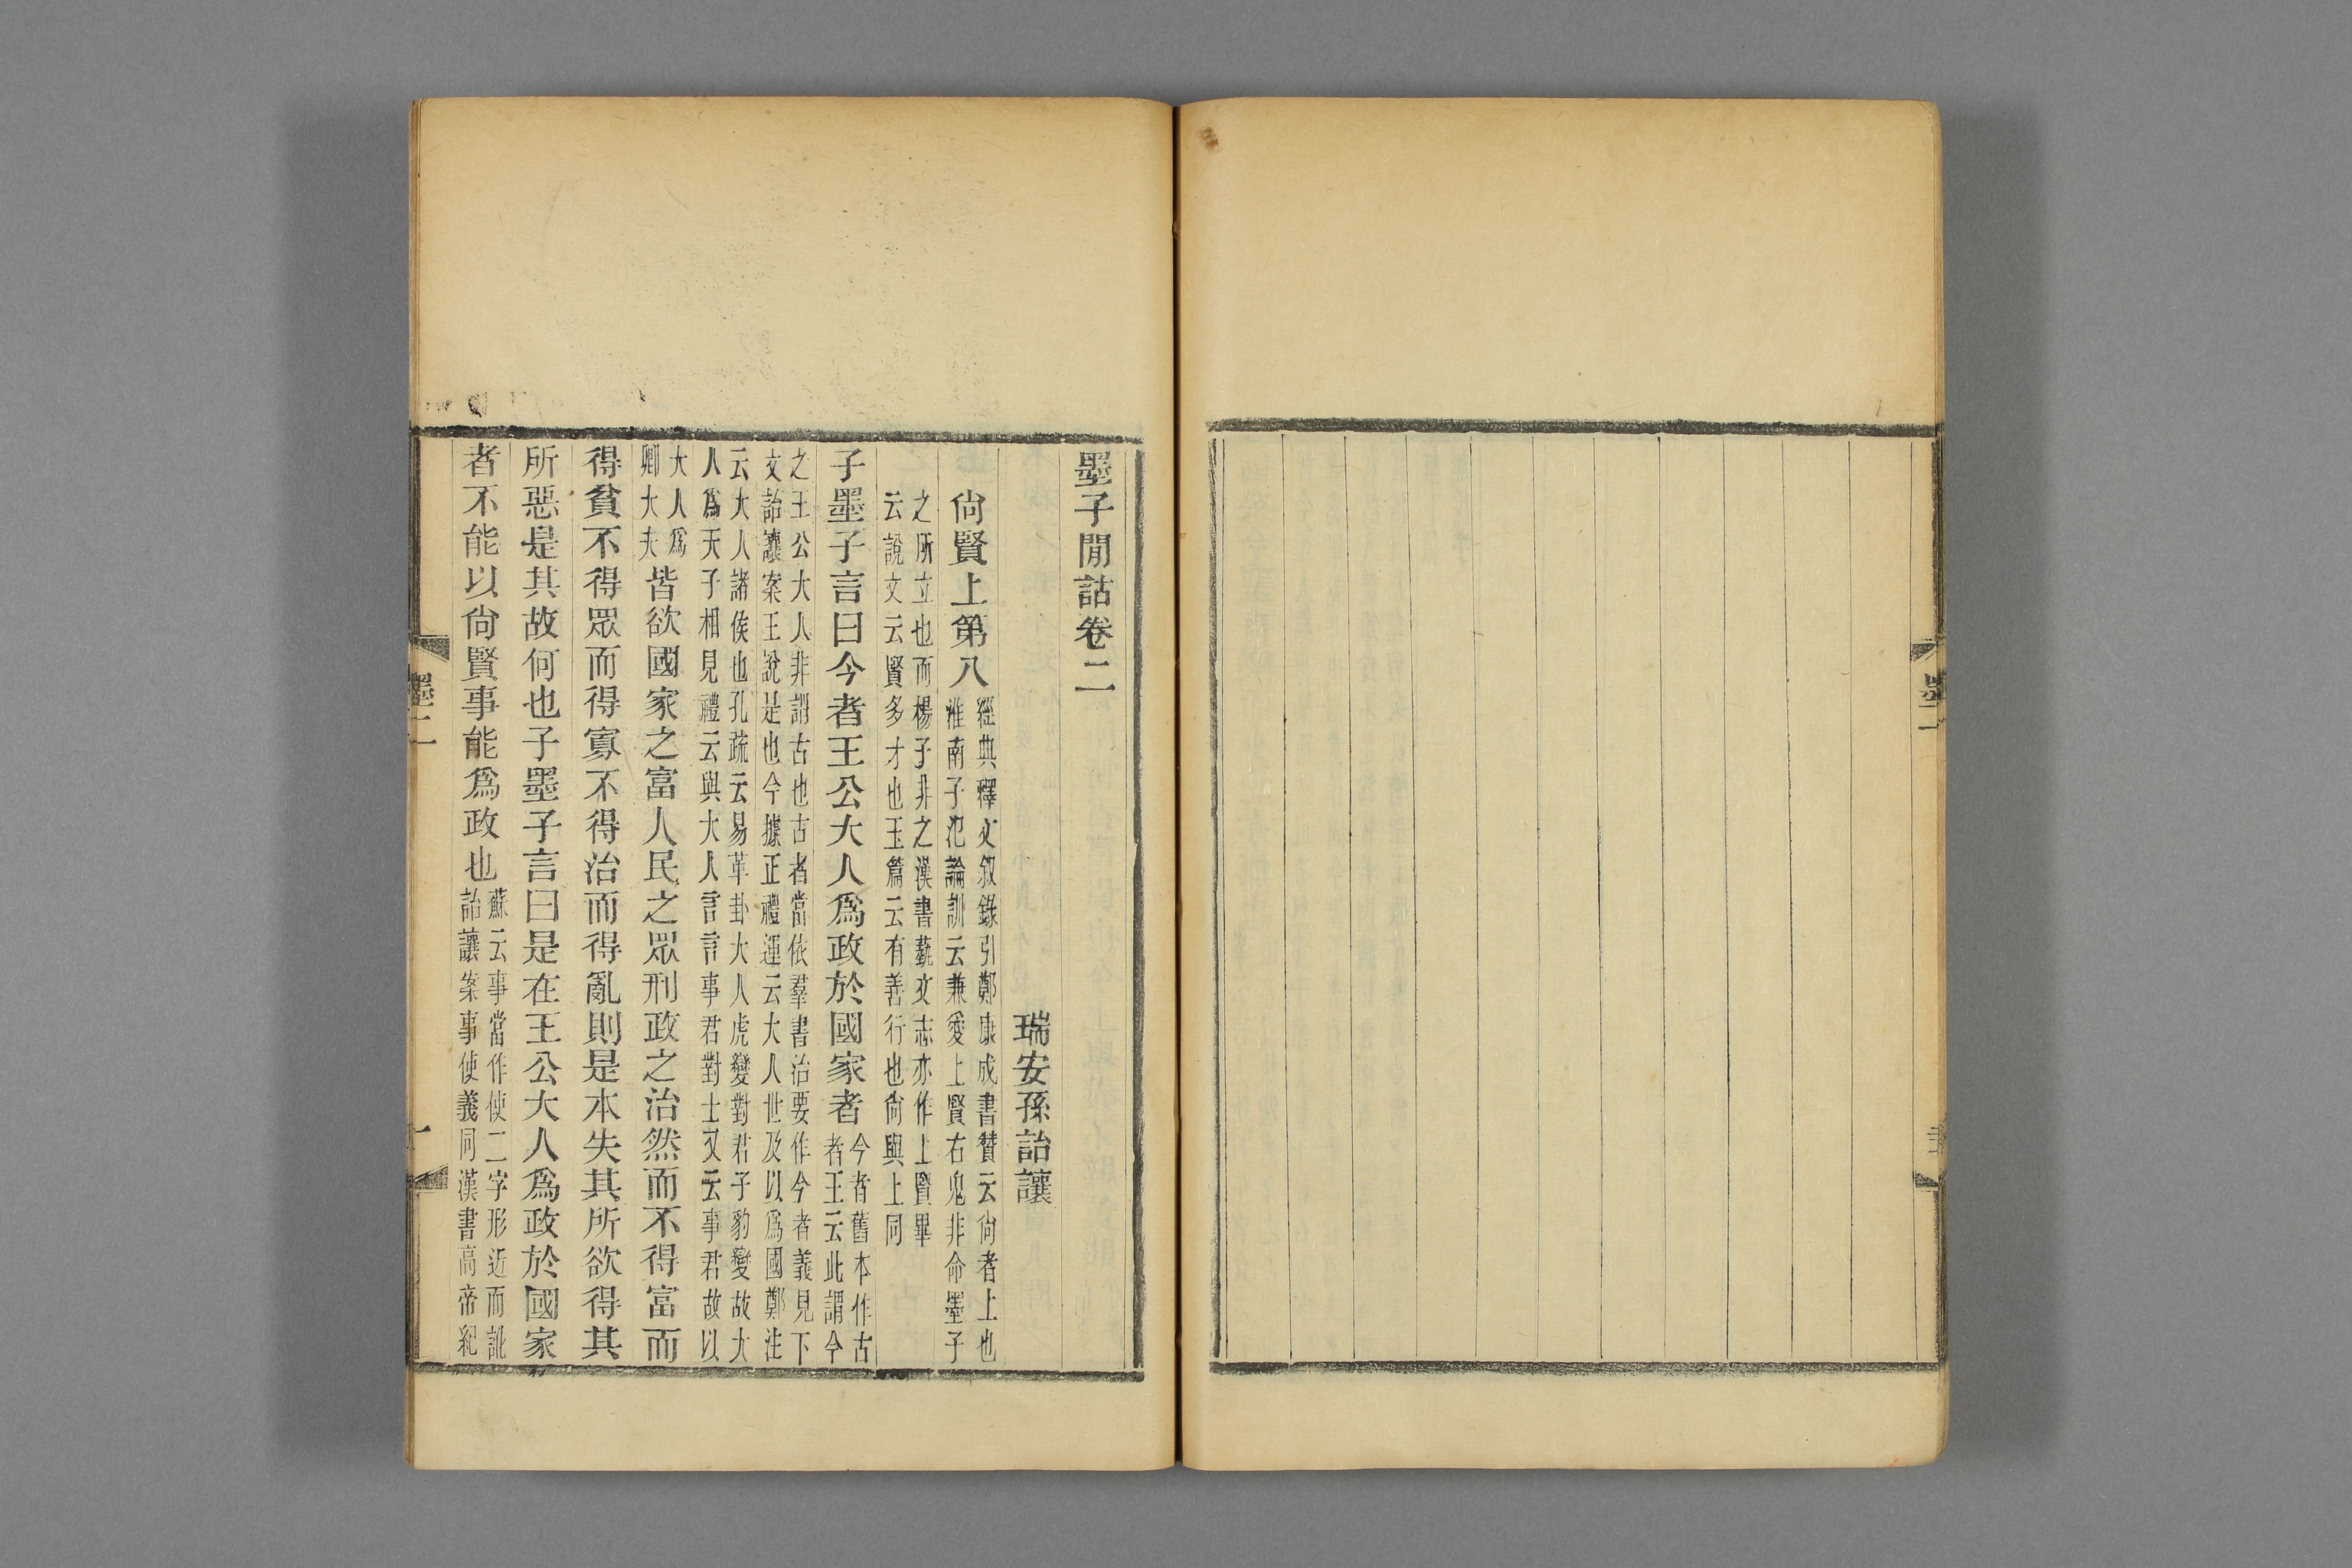 墨子閒詁卷二
瑞安孫詒讓
尙賢上第八
經典釋文叙錄引鄭康成書贊云尙者上也
淮南子氾論訓云兼愛上賢右鬼非命墨子
之所立也而楊子非之漢書蓺文志亦作上賢畢
云說文云賢多才也玉篇云有善行也尙與上同
子墨子言曰今者王公大人爲政於國家者
今者舊本作古
者王云此謂今
之王公大人非謂古也古者當依羣書治要作今者義見下
文詒讓案王說是也今據正禮運云大人世及以爲國鄭注
云大人諸侯也孔疏云易革卦大人虎變對君子豹變故大
人爲天子相見禮云與大人言言事君對士又云事君故以
大人爲
卿大夫
皆欲國家之富人民之眾刑政之治然而不得富而
得貧不得眾而得寡不得治而得亂則是本失其所欲得其
所惡是其故何也子墨子言曰是在王公大人爲政於國家
者不能以尙賢事能爲政也
蘇云事當作使二字形近而訛
詒讓案事使義同漢書高帝紀
墨二
一
墨二